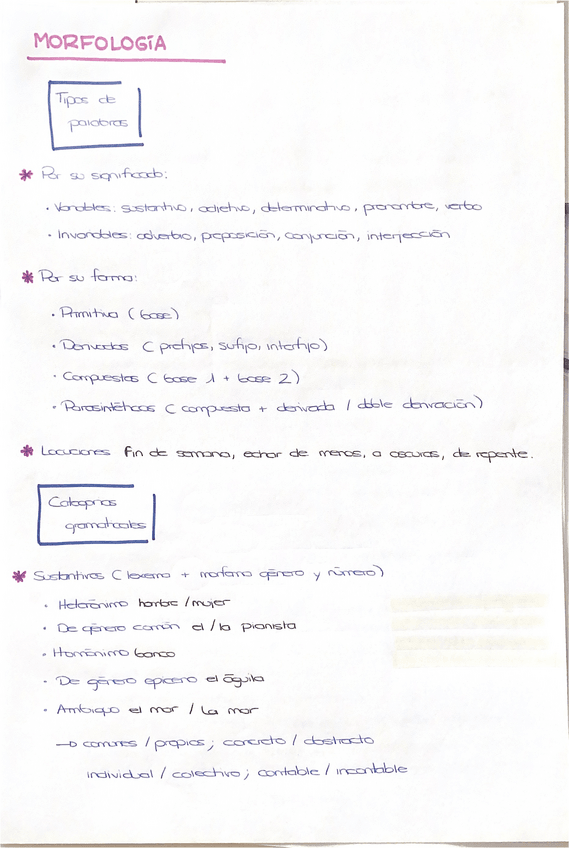 MORFOLOGÍA
Tipos de
palabras
* Por su significado:
· Variables: sustantivo, adjetivo, determinativo, pronombre, verbo
· Invariables: adverbio, preposición, conjunción, interjección
* Por su forma:
· Primitiva (base)
· Derivados (prefijos, sufijo, interfijo)
· Compuestas (base 1 + base 2)
· Parasintéticos (compuesta + derivada / doble derivación)
* Locuciones fin de semana, echar de menos, a oscuras, de repente.
Categorías
gramaticales
* Sustantivos (lexema + morfema género y número)
· Heterónimo hombre / mujer
· De género común el / la pianista
· Homónimo banco
· De género epiceno el águila
· Ambiguo el mar / La mar
→ comunes / propios; concreto / abstracto
individual / colectivo; contable / incontable